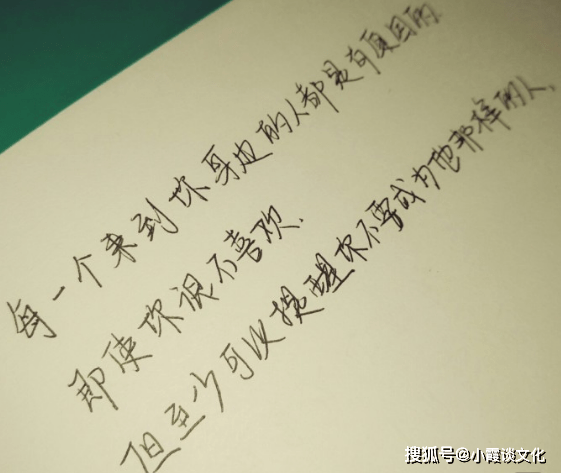 每一个来到你身边的人都是有原因的
即使你很不喜欢.
但至少可以提醒你不要成为他那样的人.
搜狐号@小霞谈文化